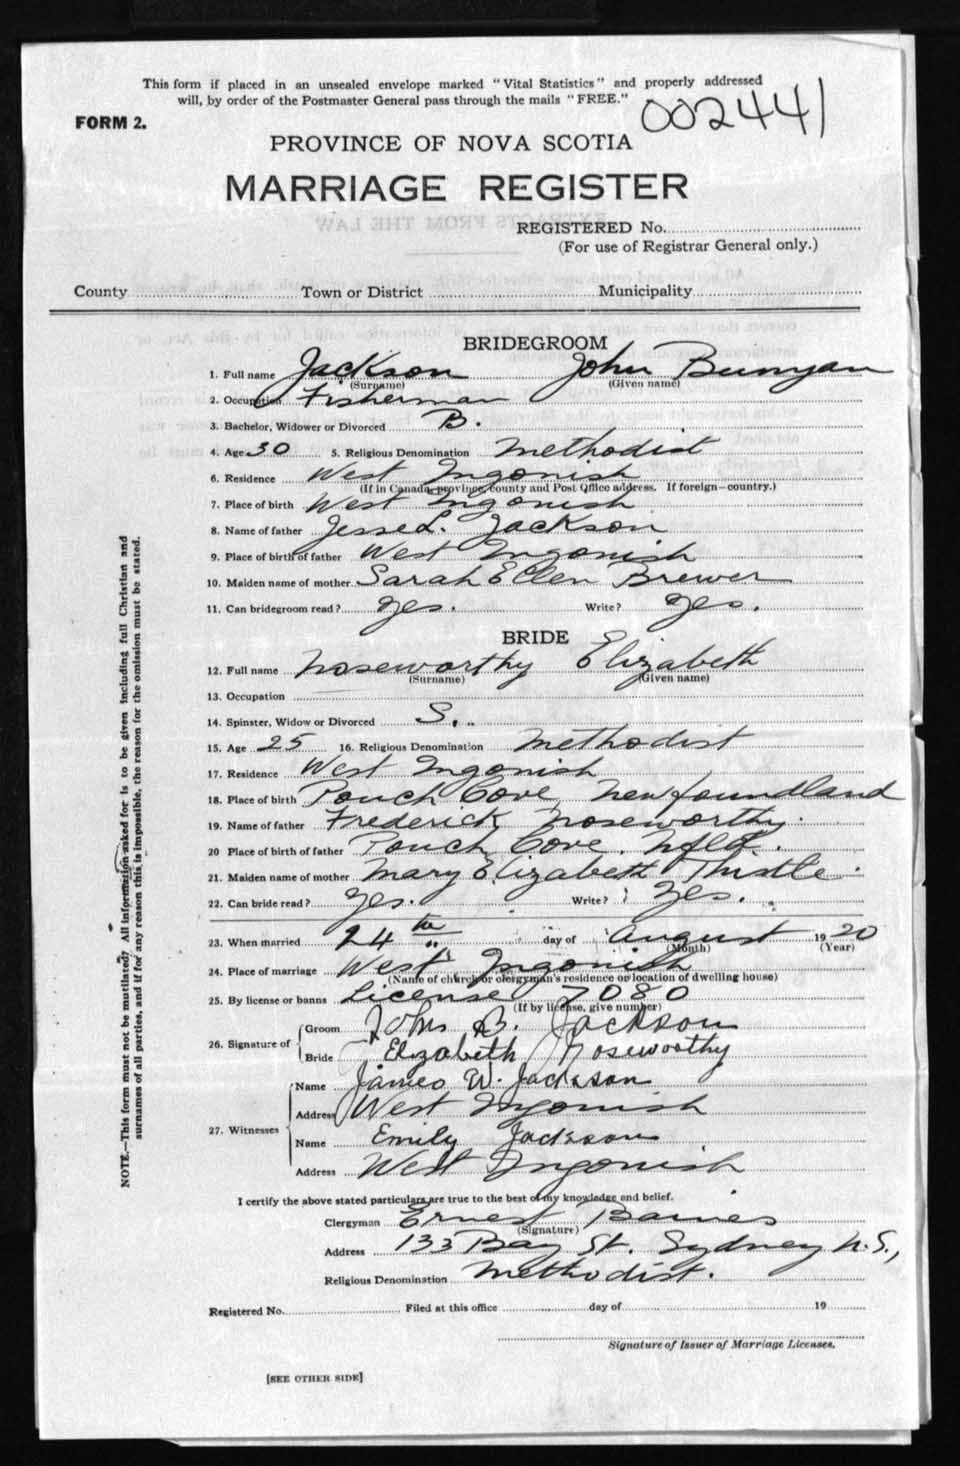 This form if placed in an unsealed envelope marked "Vital Statistics" and properly addressed
will, by order of the Postmaster General pass through the mails "FREE."
002441
FORM 2.
PROVINCE OF NOVA SCOTIA
MARRIAGE REGISTER
REGISTERED No.
(For use of Registrar General only.)
County Town or District Municipality
BRIDEGROOM
1. Full name Jackson John Bunyan
(Surname) (Given name)
2. Occupation Fisherman
3. Bachelor, Widower or Divorced B.
4. Age 30 5. Religious Denomination Methodist
6. Residence West Ingonish
(If in Canada, province, county and Post Office address. If foreign—country.)
7. Place of birth West Ingonish
8. Name of father Jesse L. Jackson
9. Place of birth of father West Ingonish
10. Maiden name of mother Sarah Ellen Brewer
11. Can bridegroom read? Yes. Write? Yes.
BRIDE
12. Full name Noseworthy Elizabeth
(Surname) (Given name)
13. Occupation
14. Spinster, Widow or Divorced S.
15. Age 25 16. Religious Denomination Methodist
17. Residence West Ingonish
18. Place of birth Pouch Cove Newfoundland
19. Name of father Frederick Noseworthy.
20 Place of birth of father Pouch Cove. Nfld.
21. Maiden name of mother Mary Elizabeth Thistle.
22. Can bride read? Yes. Write? Yes.
23. When married 24th day of August 1920
(Month) (Year)
24. Place of marriage West Ingonish
(Name of church or clergyman's residence or location of dwelling house)
25. By license or banns License 7080
(If by license, give number)
26. Signature of Groom John B. Jackson
Bride Elizabeth Noseworthy
27. Witnesses Name James W. Jackson
Address West Ingonish
Name Emily Jackson
Address West Ingonish
I certify the above stated particulars are true to the best of my knowledge and belief.
Clergyman Ernest Barnes
(Signature)
Address 133 Bay St. Sydney N.S.,
Religious Denomination Methodist.
Registered No. Filed at this office day of 19
Signature of Issuer of Marriage Licenses.
[SEE OTHER SIDE]
NOTE.—This form must not be mutilated. All information asked for is to be given including full Christian and
surnames of all parties, and if for any reason this is impossible, the reason for the omission must be stated.
EXTRACTS FROM THE LAW